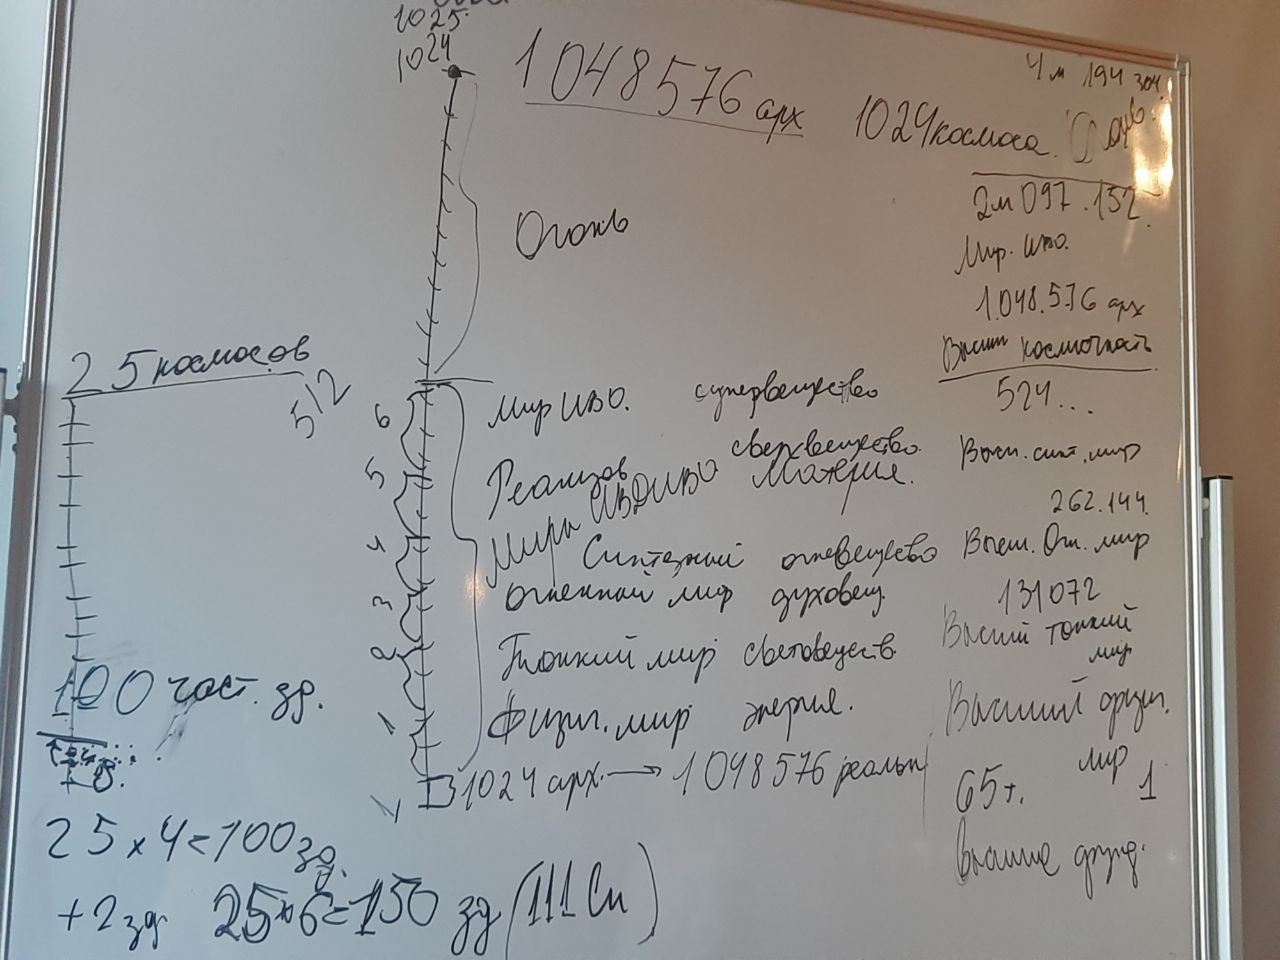 1025
1024
1048576 арх
1024 космоса.
4 м 194 304
2м 097.152
Мир. ИВО.
1.048.576 арх
Высш космичность
524...
Высш. синт. мир
262.144.
Высш. Ог. мир
131072
Высший тонкий
мир
Высший физич.
мир
65т. 1
Огонь
25 космосов
512
6
5
4
3
2
1
Мир ИВО. супервещество
сверхвещество
Реализов
Материя.
Миры ИВДИВО
Синтезный огневещество
огненный мир духовещ.
Тонкий мир световеществ
Физич. мир энергия.
1024 арх. → 1048576 реальн
100 част. зд.
25 x 4 = 100 зд.
+ 2 зд 25x6=150 зд (111 Си)